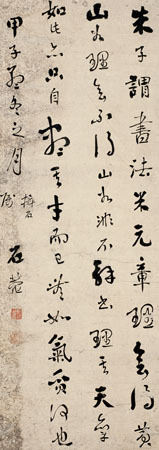 朱子謂書法米元章理會得黃
山谷理會不得山谷非不解書理其天分
如此亦只自盡其才而已無如氣質何也
甲子孟冬之月
石菴